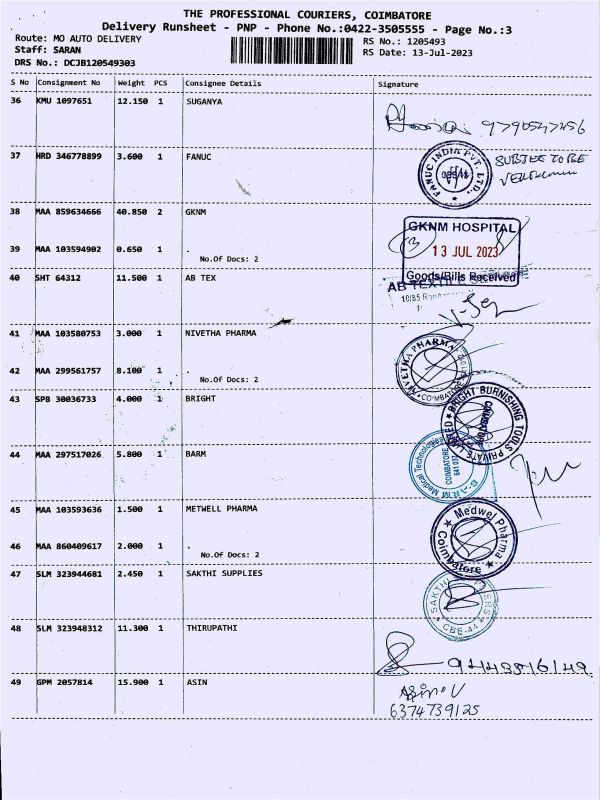 THE PROFESSIONAL COURIERS, COIMBATORE
Delivery Runsheet - PNP - Phone No.:0422-3505555 - Page No.:3
Route: MO AUTO DELIVERY
RS No.: 1205493
Staff: SARAN
RS Date: 13-Jul-2023
DRS No.: DCJB120549303
S No Consignment No Weight PCS Consignee Details Signature
36 KMU 1097651 12.150 1 SUGANYA
9790547456
37 HRD 346778899 3.600 1 FANUC
FANUC INDIA PVT. LTD.,
SUBJEC TO BE
38 MAA 859634666 40.850 2 GKNM
GKNM HOSPITAL
13 JUL 2023
Goods/Bills Received
39 MAA 103594902 0.650 1 .
No.Of Docs: 2
40 SHT 64312 11.500 1 AB TEX
AB
10/85
41 MAA 103580753 3.000 1 NIVETHA PHARMA
NIVETHA PHARMA
COIMBATORE
42 MAA 299561757 8.100 1 .
No.Of Docs: 2
43 SPB 30036733 4.000 1 BRIGHT
BRIGHT BURNISHING TOOLS PRIVATE LIMITED
44 MAA 297517026 5.800 1 BARM
BARM Medical Technologies
COIMBATORE
641 037
45 MAA 103593636 1.500 1 METWELL PHARMA
Medwel Pharma
Coimbatore
46 MAA 860409617 2.000 1 .
No.Of Docs: 2
47 SLM 323944681 2.450 1 SAKTHI SUPPLIES
SAKTHI
CBE-44
48 SLM 323948312 11.300 1 THIRUPATHI
9443516149
49 GPM 2057814 15.900 1 ASIN
Asin V
6374739125